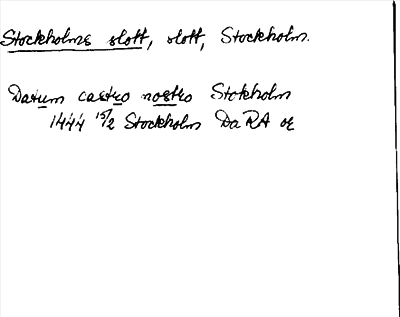 Stockholms slott, slott, Stockholm.
Datum castro nostro Stokholm
1444 15/2 Stockholm DaRA or